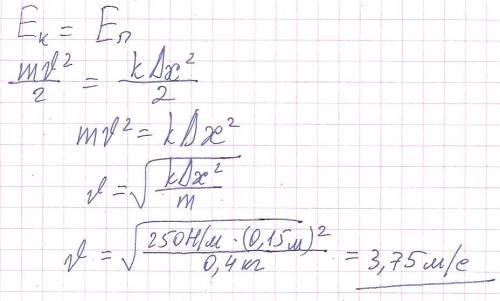 Eк = Eп
mϑ²/2 = kΔx²/2
mϑ² = kΔx²
ϑ = √(kΔx²/m)
ϑ = √(250Н/м · (0,15м)²/0,4кг) = 3,75м/с